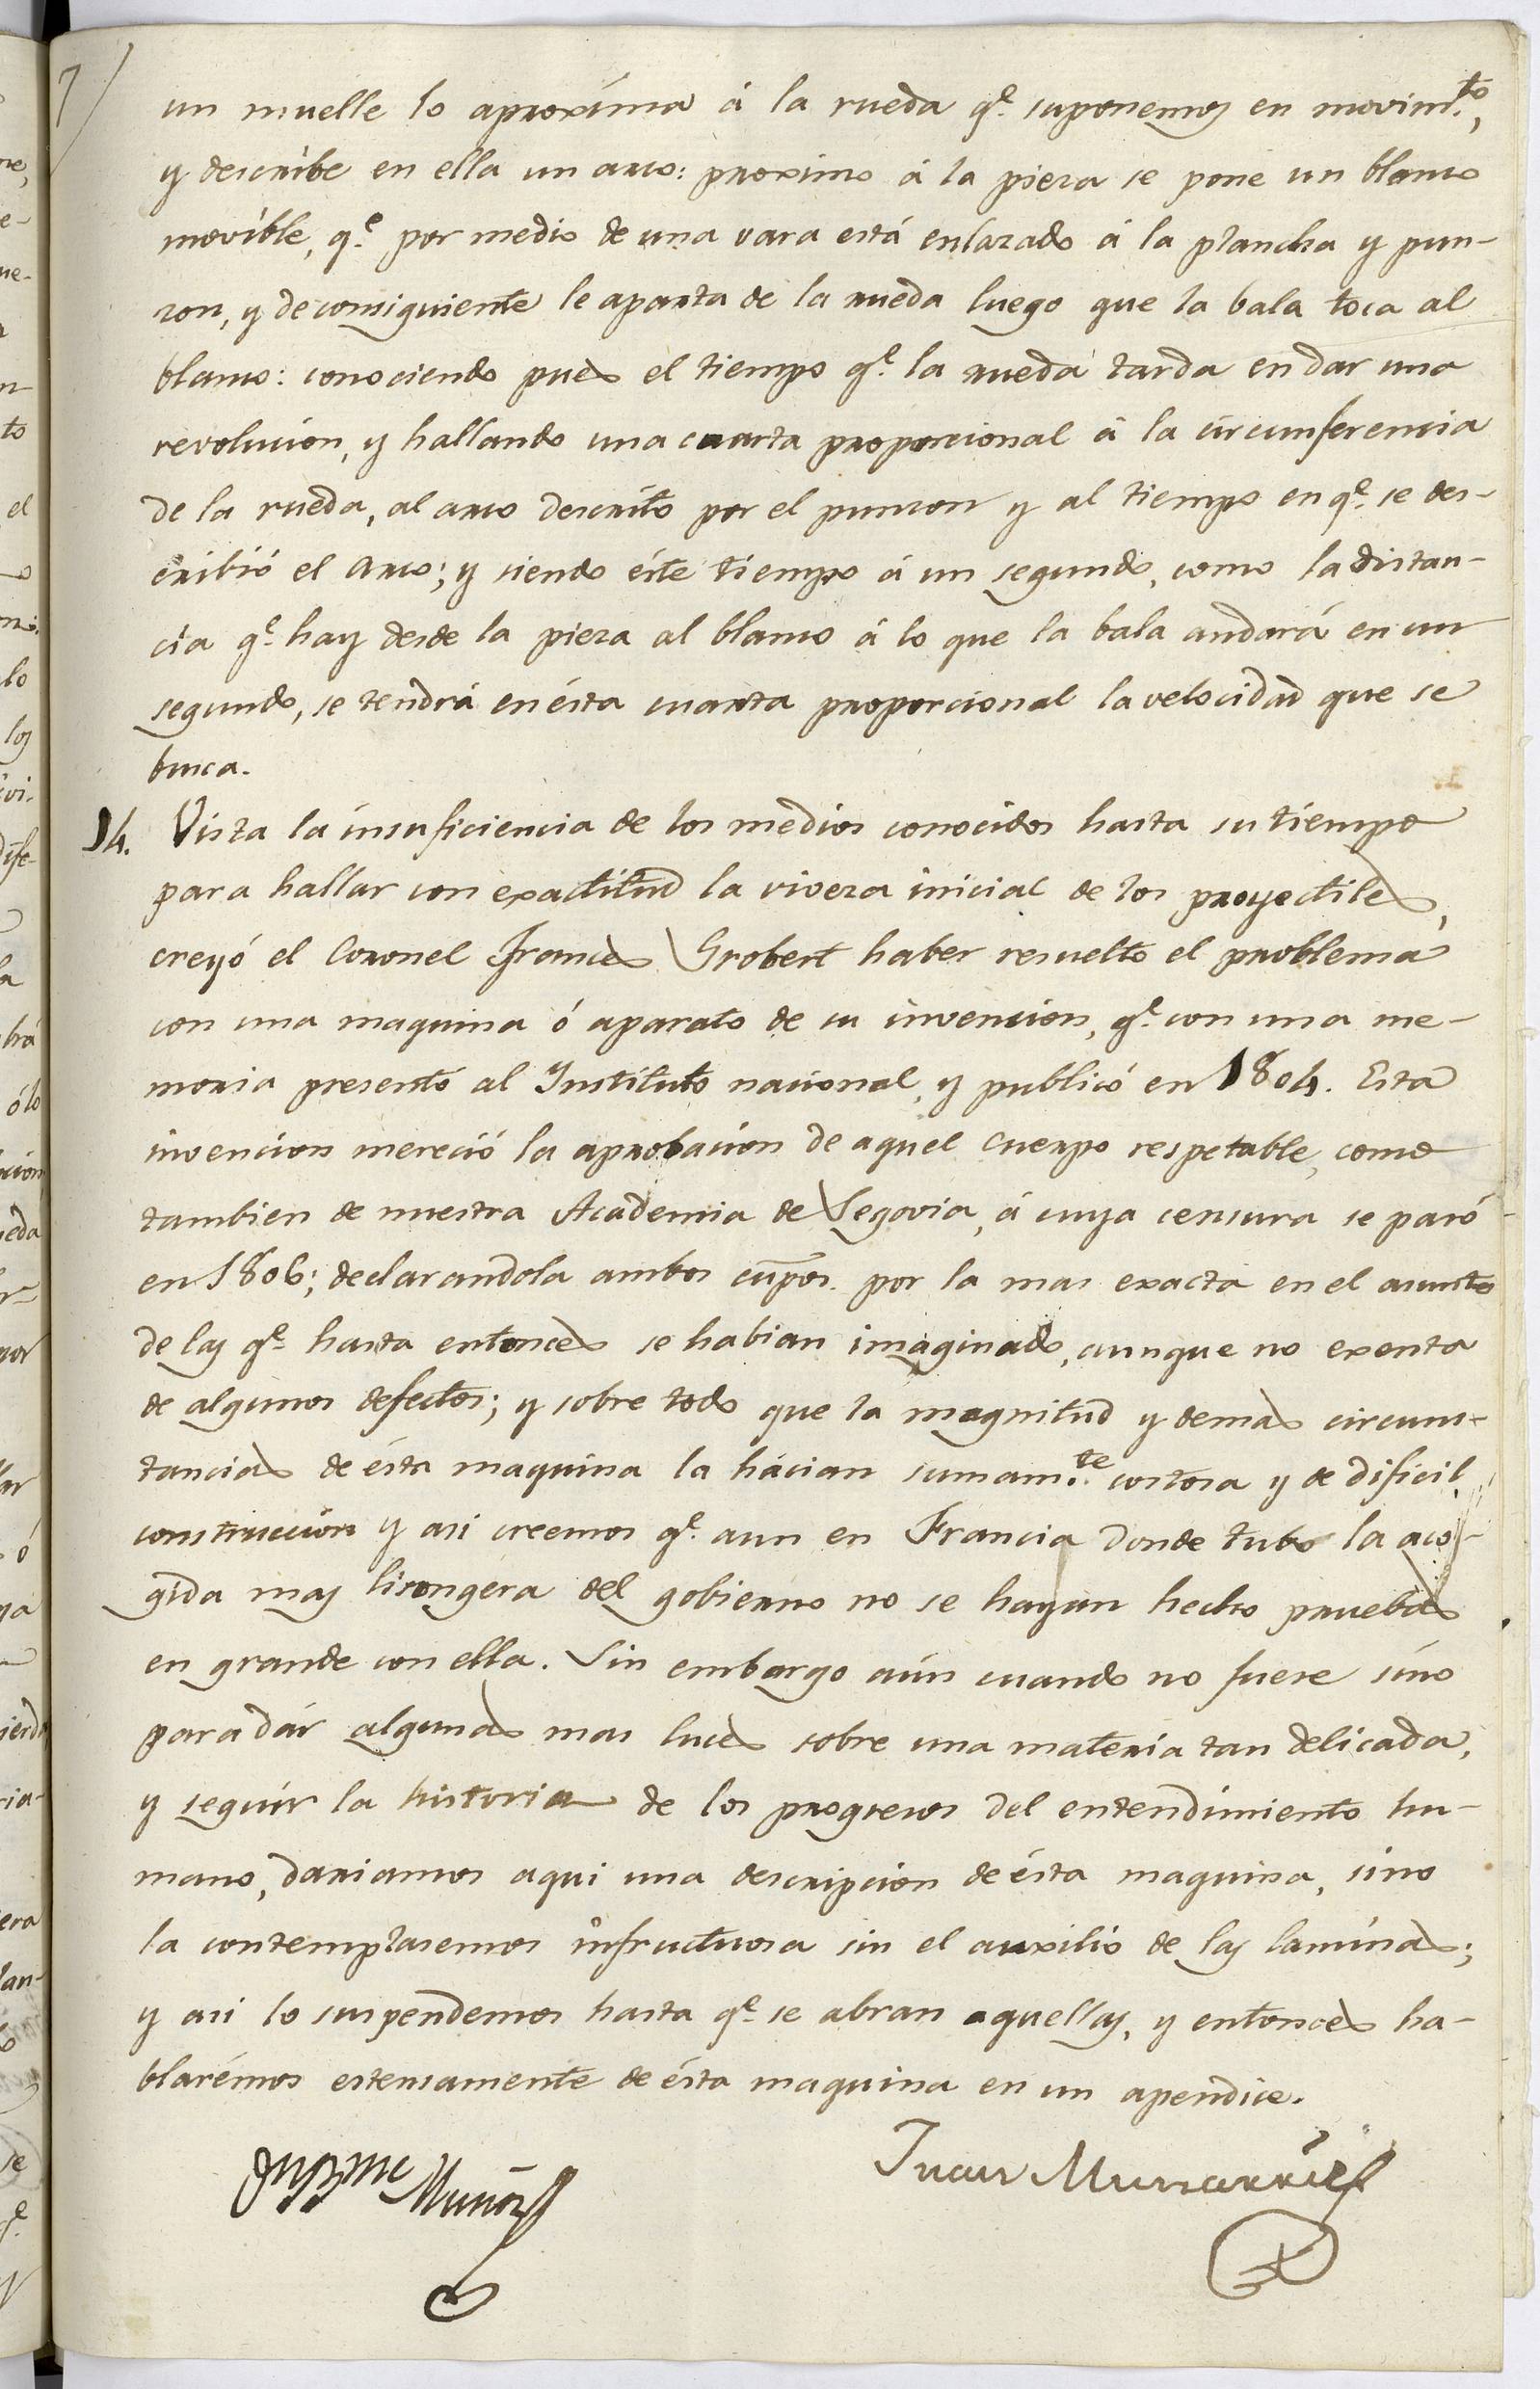 7
un muelle lo aproxíma á la rueda q.e suponemos en movim.to,
y describe en ella un arco: proximo á la pieza se pone un blanco
movible, q.e por medio de una vara está enlazado á la plancha y pun-
zon, y de consiguiente le aparta de la rueda luego que la bala toca al
blanco: conociendo pues el tiempo q.e la rueda tarda en dar una
revolucion, y hallando una cuarta proporcional á la circunferencia
de la rueda, al arco descrito por el punzon y al tiempo en q.e se des-
cribió el arco; y siendo éste tiempo á un segundo, como la distan-
cia q.e hay desde la pieza al blanco á lo que la bala andará en un
segundo, se tendrá en ésta cuarta proporcional la velocidad que se
busca.
14. Vista la insuficiencia de los medios conocidos hasta su tiempo
para hallar con exactitud la viveza inicial de los proyectiles,
creyó el Coronel Frances Grobert haber resuelto el problema
con una maquina ó aparato de su invencion, q.e con una me-
moria presentó al Instituto nacional, y publicó en 1804. Esta
invencion mereció la aprobacion de aquel cuerpo respetable, como
tambien de nuestra Academia de Segovia, á cuya censura se pasó
en 1806; declarandola ambos cũpos. por la mas exacta en el asunto
de las q.e hasta entonces se habian imaginado, aunque no exenta
de algunos defectos; y sobre todo que la magnitud y demas circuns-
tancias de ésta maquina la hácian sumam.te costosa y de dificil
construccion y asi creemos q.e aun en Francia donde tubo la aco-
gida mas lisongera del gobierno no se hayan hecho pruebas
en grande con ella. Sin embargo aún cuando no fuese sino
para dár algunas mas luces sobre una materia tan delicada,
y seguir la historia de los progresos del entendimiento hu-
mano, dariamos aqui una descripcion de ésta maquina, sino
la contemplasemos infructuosa sin el auxilio de las laminas;
y asi lo suspendemos hasta q.e se abran aquellas, y entonces ha-
blarémos estensamente de ésta maquina en un apendice.
Muñoz
Juan Munarriz